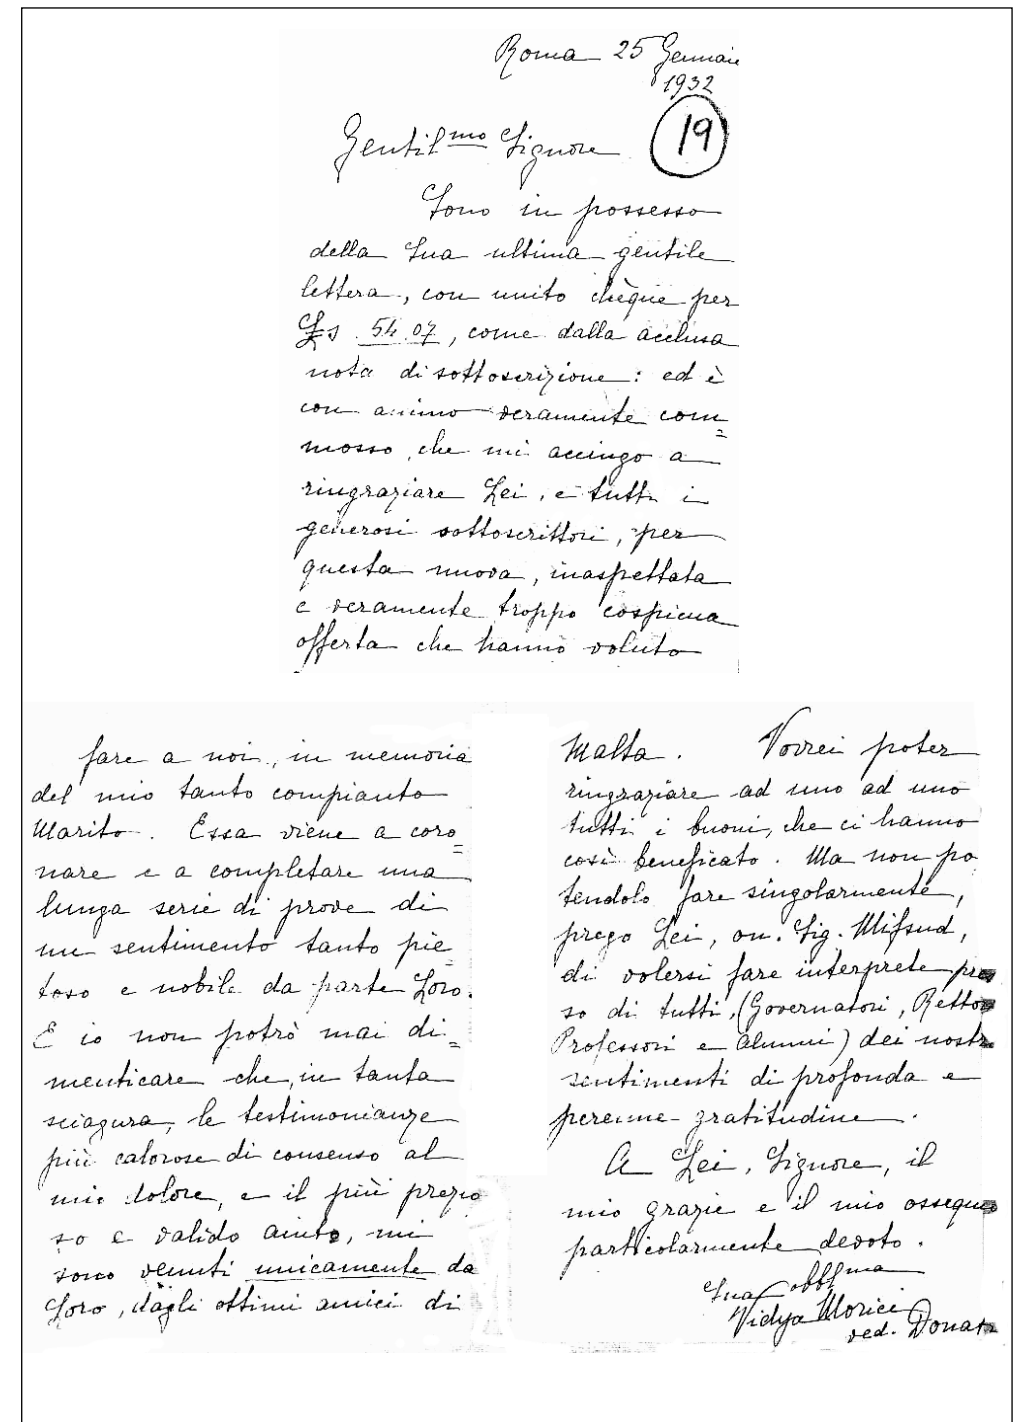 Roma 25 Gennaio
1932
19
Gentil.mo Signore
Sono in possesso
della Sua ultima gentile
lettera, con unito chèque per
£s 54.07, come dalla acclusa
nota di sottoscrizione: ed è
con animo veramente com=
mosso, che mi accingo a
ringraziare Lei, e tutti i
generosi sottoscrittori, per
questa nuova, inaspettata
e veramente troppo cospicua
offerta che hanno voluto
fare a noi, in memoria
del mio tanto compianto
Marito. Essa viene a coro=
nare e a completare una
lunga serie di prove di
un sentimento tanto pie=
toso e nobile da parte Loro.
E io non potrò mai di=
menticare che, in tanta
sciagura, le testimonianze
più calorose di consenso al
mio dolore, e il più prezio
so e valido aiuto, mi
sono venuti unicamente da
Loro, dagli ottimi amici di
Malta. Vorrei poter
ringraziare ad uno ad uno
tutti i buoni, che ci hanno
così beneficato. Ma non po
tendolo fare singolarmente,
prego Lei, on. Sig. Mifsud,
di volersi fare interprete pres
so di tutti, (Governatori, Rettor
Professori e Alunni) dei nostr
sentimenti di profonda e
perenne gratitudine.
A Lei, Signore, il
mio grazie e il mio ossequio
particolarmente devoto.
Sua obbl.ma
Vidya Morici
ved. Donat